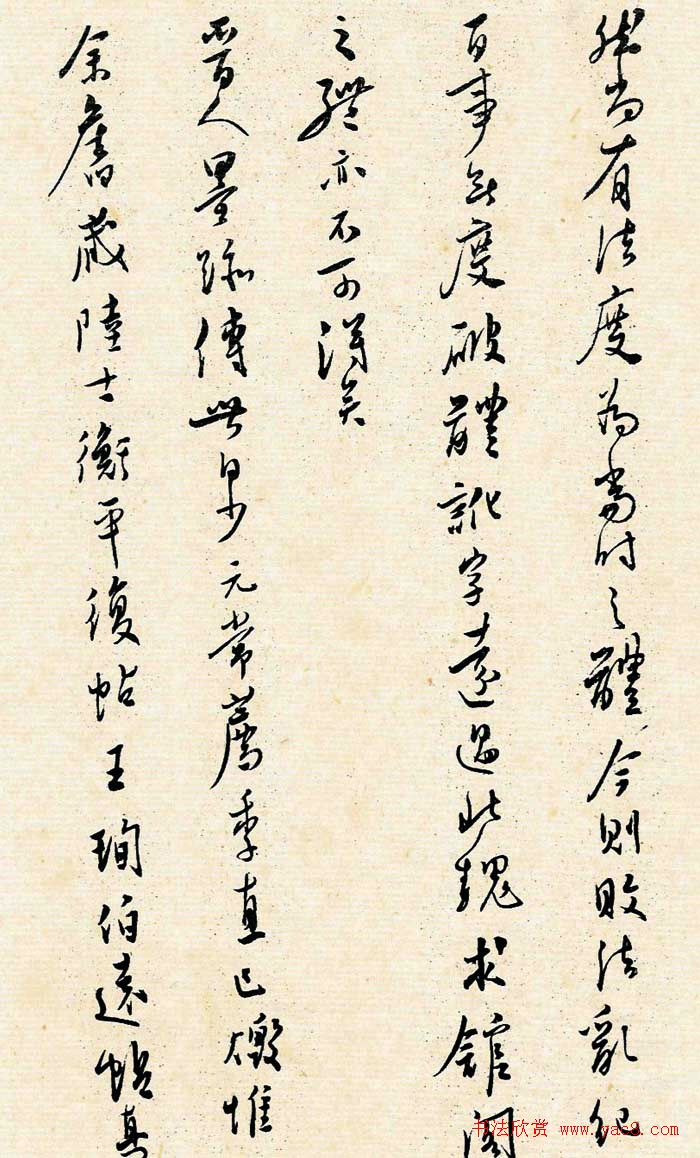 然尚有法度为当时之體今则敗法亂纪
百事無度破體訛字遠過此種求舘阁
之體亦不可得矣
晋人墨跡傳世最少元常薦季直已燬惟
余舊蔵陸士衡平復帖王珣伯遠帖真
书法欣赏 www.yac8.com